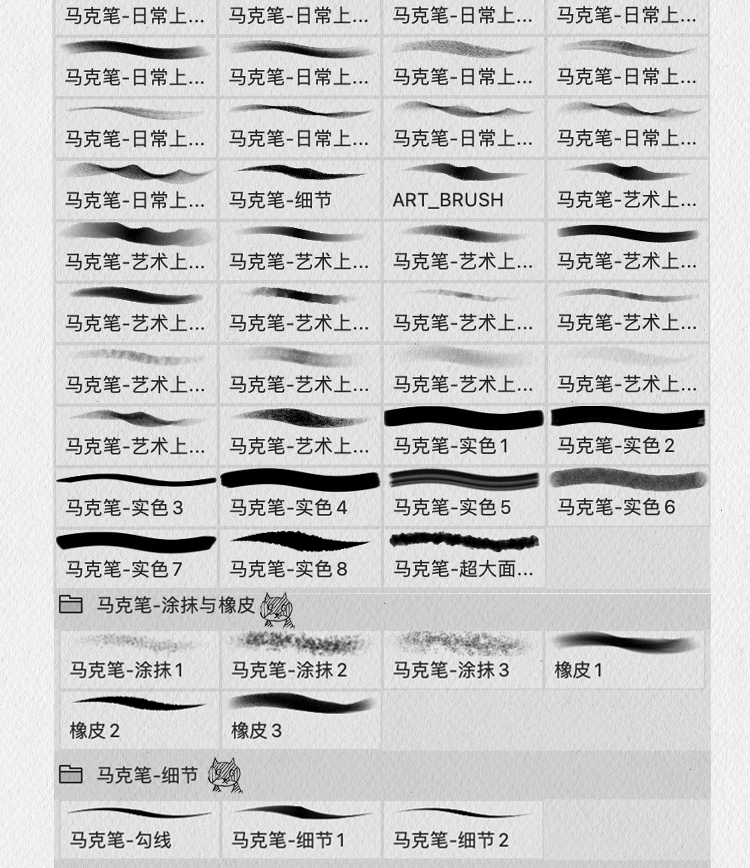 马克笔-日常上... 马克笔-日常上... 马克笔-日常上... 马克笔-日常上...
马克笔-日常上... 马克笔-日常上... 马克笔-日常上... 马克笔-日常上...
马克笔-日常上... 马克笔-日常上... 马克笔-日常上... 马克笔-日常上...
马克笔-日常上... 马克笔-细节 ART_BRUSH 马克笔-艺术上...
马克笔-艺术上... 马克笔-艺术上... 马克笔-艺术上... 马克笔-艺术上...
马克笔-艺术上... 马克笔-艺术上... 马克笔-艺术上... 马克笔-艺术上...
马克笔-艺术上... 马克笔-艺术上... 马克笔-艺术上... 马克笔-艺术上...
马克笔-艺术上... 马克笔-艺术上... 马克笔-实色1 马克笔-实色2
马克笔-实色3 马克笔-实色4 马克笔-实色5 马克笔-实色6
马克笔-实色7 马克笔-实色8 马克笔-超大面...
马克笔-涂抹与橡皮
马克笔-涂抹1 马克笔-涂抹2 马克笔-涂抹3 橡皮1
橡皮2 橡皮3
马克笔-细节
马克笔-勾线 马克笔-细节1 马克笔-细节2